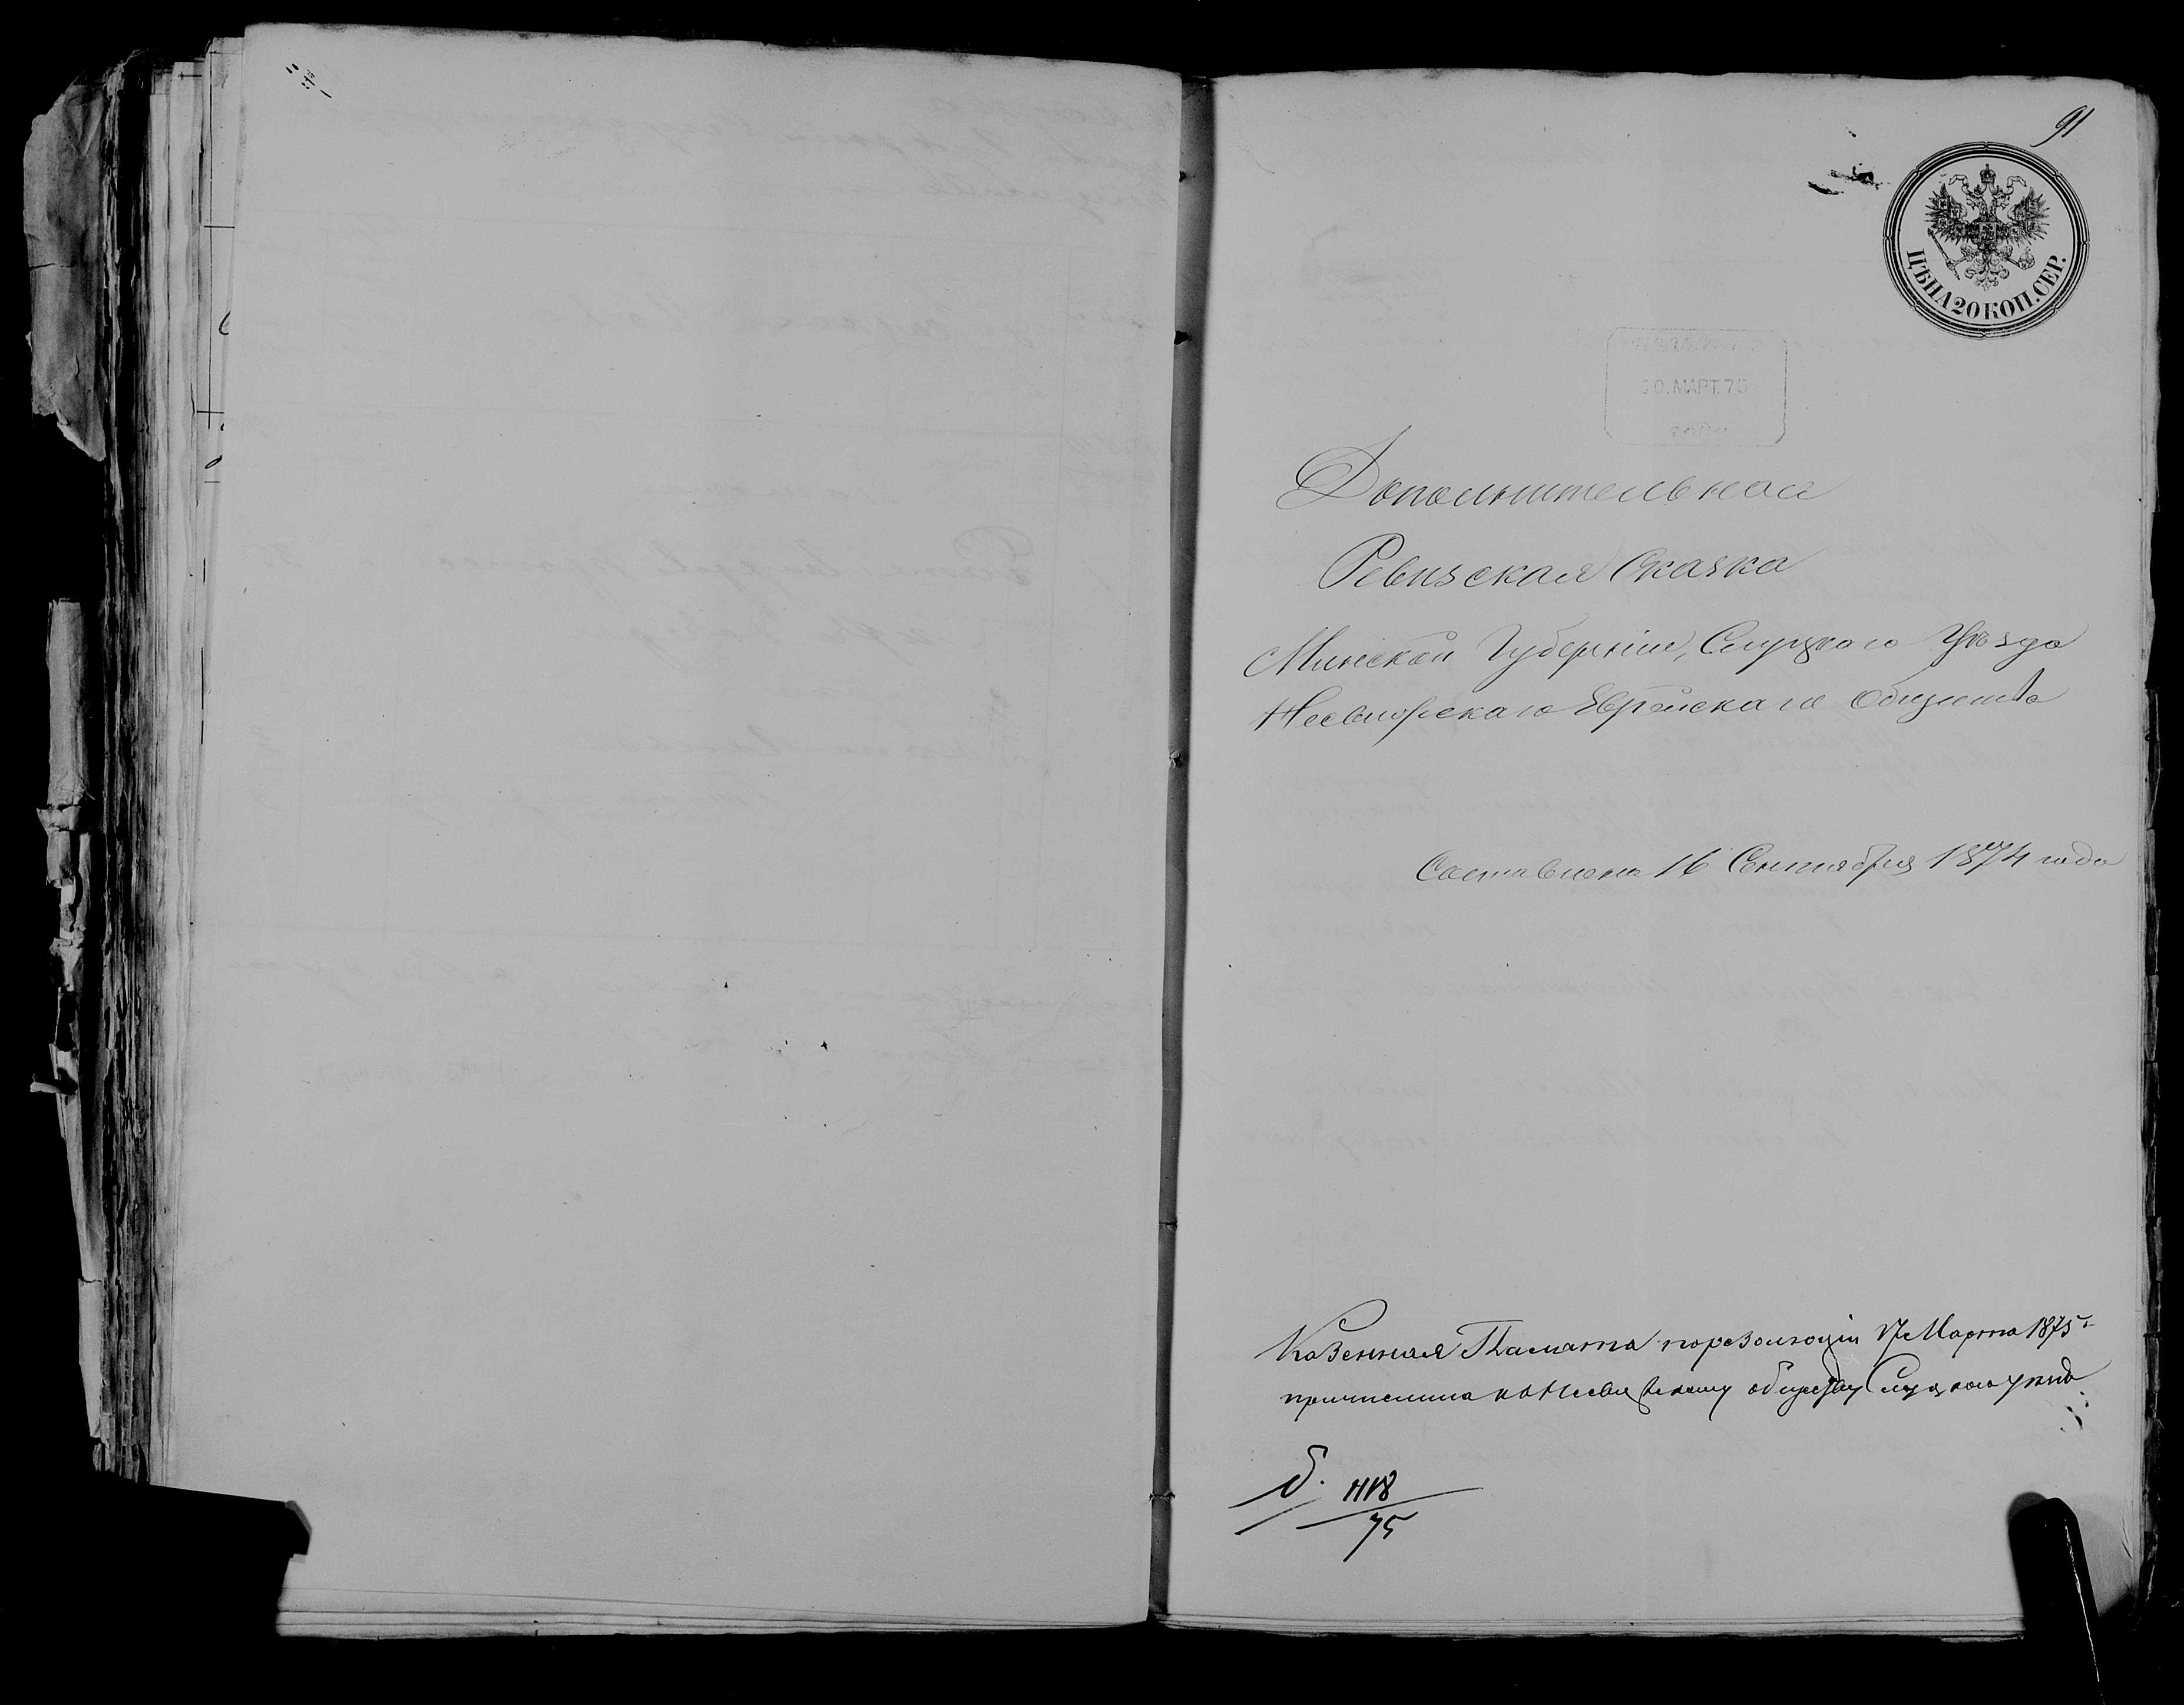 91
ЦѢНА 20 КОП. СЕР.
30. МАРТ. 75
Дополнительная
Ревизская Сказка
Минской Губерніи, Слуцкаго Уѣзда
Несвижскаго Еврейскаго Общества
Составлена 16 Сентября 1874 года
Казенная Палата по резолюціи 17 Марта 1875 г.
причислила къ Несвижскому обществу Слуцкаго уѣзда
75